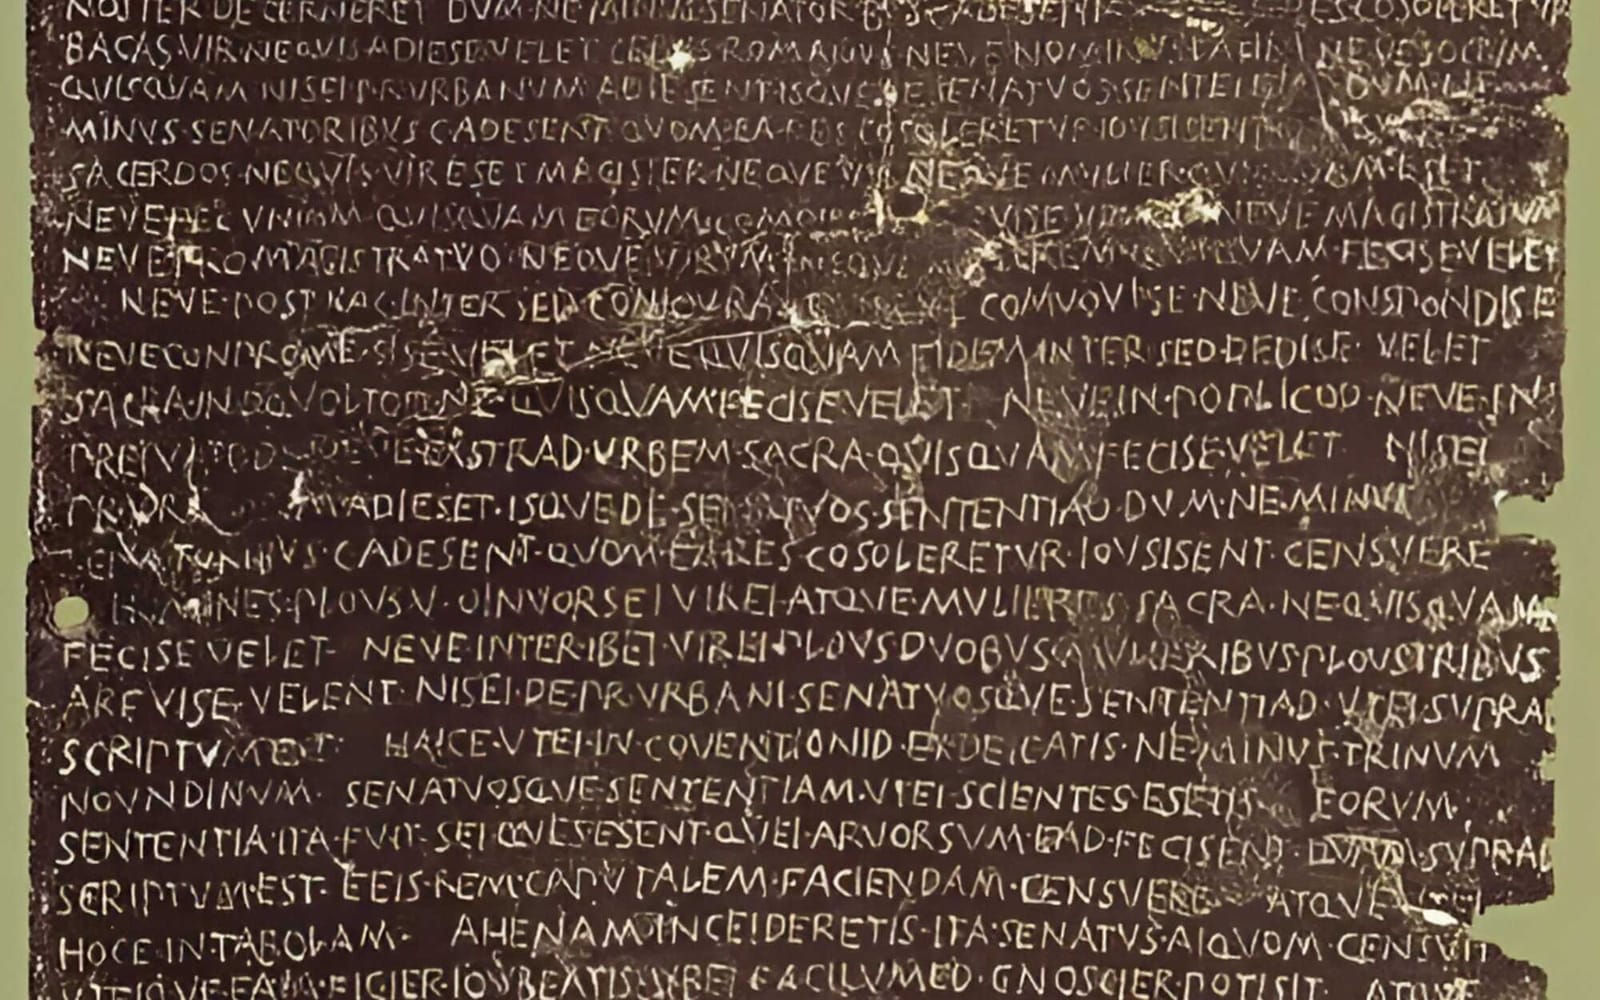 NOSTER DECERNERET DVM NE MINVS SENATOR BVS C ADESENT COSOLERETVR
BACAS VIR NEQVIS ADIESE VELET CEIVIS ROMANVS NEVE NOMINVS LATINI NEVE SOCIVM
QVISQVAM NISEI PR VRBANVM ADIESENT ISQVE DE SENATVOS SENTENTIAD DVM NE
MINVS SENATORIBVS C ADESENT QVOM EA RES COSOLERETVR IOVSISENT
SACERDOS NEQVIS VIR ESET MAGISTER NEQVE VIR NEQVE MVLIER QVISQVAM ESET
NEVE PECVNIAM QVISQVAM EORVM COMOINE VISE NEVE MAGISTRATVM
NEVE PRO MAGISTRATVO NEQVE VIRVM NEQVE QVISQVAM FECISE VELET
NEVE POST HAC INTER SED CONIOVRA COMVOVISE NEVE CONSPONDISE
NEVE CONPROMESISE VELET NEVE QVISQVAM FIDEM INTER SED DEDISE VELET
SACRA IN OQVOLTOD NE QVISQVAM FECISE VELET NEVE IN POPLICOD NEVE IN
PREIVATOD NEVE EXSTRAD VRBEM SACRA QVISQVAM FECISE VELET NISEI
PR VRBANVM ADIESET ISQVE DE SENATVOS SENTENTIAD DVM NE MINVS
SENATORIBVS C ADESENT QVOM EA RES COSOLERETVR IOVSISENT CENSVERE
HOMINES PLOVS V OINVORSEI VIREI ATQVE MVLIERES SACRA NE QVISQVAM
FECISE VELET NEVE INTER IBEI VIREI PLOVS DVOBVS MVLIERIBVS PLOVS TRIBVS
ARFVISE VELENT NISEI DE PR VRBANI SENATVOSQVE SENTENTIAD VTEI SVPRAD
SCRIPTVM EST HAICE VTEI IN COVENTIONID EXDEICATIS NE MINVS TRINVM
NOVNDINVM SENATVOSQVE SENTENTIAM VTEI SCIENTES ESETIS EORVM
SENTENTIA ITA FVIT SEI QVES ESENT QVEI ARVORSVM EAD FECISENT QVAM SVPRAD
SCRIPTVM EST EEIS REM CAPVTALEM FACIENDAM CENSVERE ATQVE VTEI
HOCE IN TABOLAM AHENAM INCEIDERETIS ITA SENATVS AIQVOM CENSVIT
VTEIQVE EAM FIGIER IOVBEATIS VBEI FACILVMED GNOSCIER POTISIT ATQVE